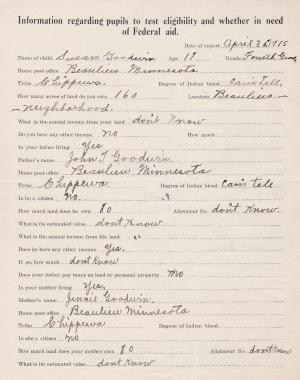 Information regarding pupils to test eligibility and whether in need
of Federal aid.
Date of report, April 3, 1915
Name of child, Susan Goodwin Age 17 Grade Fourth Grade
Home post office Beaulieu Minnesota
Tribe Chippewa. Degree of Indian blood, Can's Tell.
How many acres of land do you own 160 Location, Beaulieu
Neighborhood.
What is the annual income from your land don't Know
Do you have any other income? no How much
Is your father living Yes
Father's name John T Goodwin.
Home post office Beaulieu Minnesota
Tribe Chippewa Degree of Indian blood Can's tele
Is he a citizen? No.
How much land does he own 80 Allotment No. don't Know.
What is its estimated value dont Know
What is the annual income from his land "
Does he have any other income Yes.
If so, how much dont Know
Does your father pay taxes on land or personal property no
Is your mother living Yes.
Mother's name, Jennie Goodwin.
Home post office Beaulieu Minnesota
Tribe Chippewa Degree of Indian blood,
Is she a citizen no
How much land does your mother own 80 Allotment No. dont Know
What is its estimated value dont Know